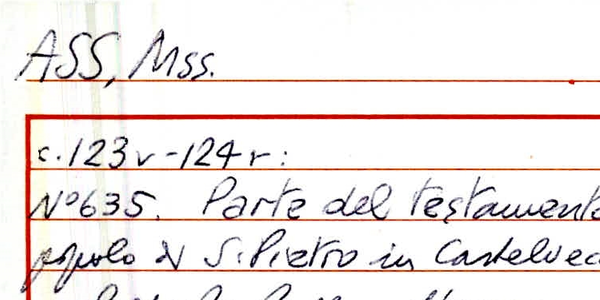 ASS, Mss.
c. 123v-124r:
N° 635. Parte del testament
popolo di S. Pietro in Castelvec